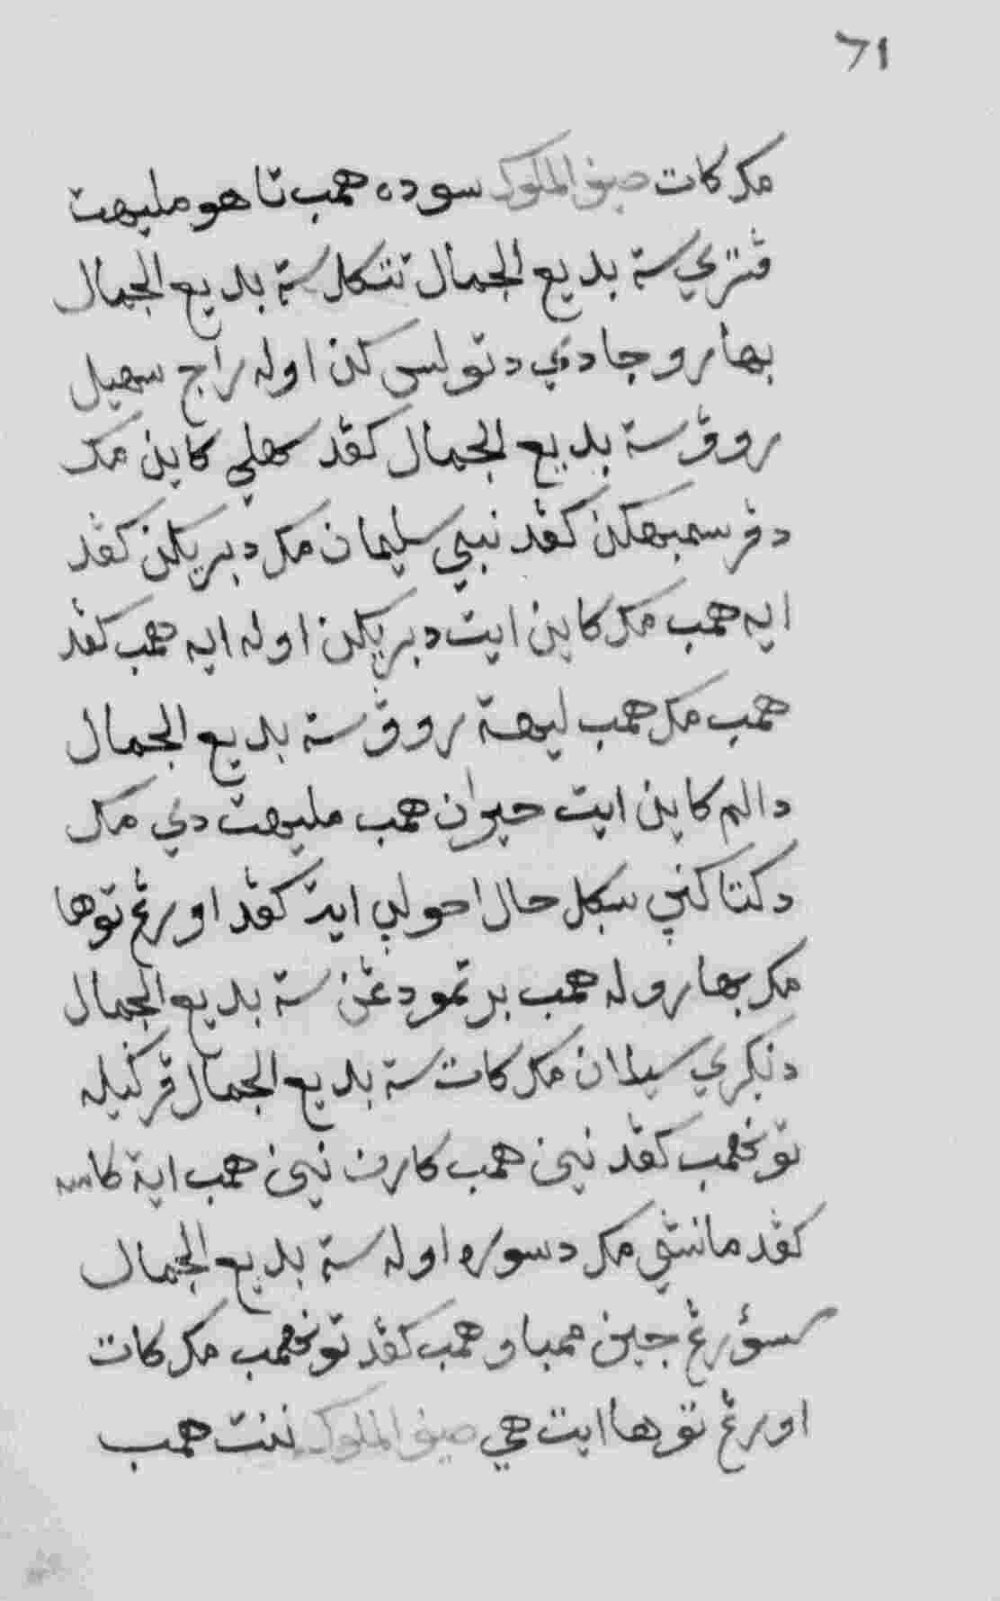 ٦١
مک کات صيف الملوک سوده همب تا هو مليهت
ڤتري ستي بديع الجمال تتکل ستي بديع الجمال
بهارو جادي دتولس کن اوله راج سهيل
روڤ ستي بديع الجمال کڤد سهلي کاين مک
دڤرسمبهکن کڤد نبي سليمان مک دبريکن کڤد
ايه همب مک کاين ايت دبريکن اوله ايه همب کڤد
همب مک همب ليهت روڤ ستي بديع الجمال
دالم کاين ايت حيران همب مليهت دي مک
دکتاکنڽ سکل حال احولڽ ايت کڤد اورڠ توها
مک بهاروله همب برتمو دڠن ستي بديع الجمال
دنکري سيلان مک کات ستي بديع الجمال ڤرکيله
تونهمب کڤد نينق همب کارن نينق همب ايت
کڤد مانسي مک دسوره اوله ستي بديع الجمال
سؤرڠ جين ممباو همب کڤد تونهمب مک کات
اورڠ توها ايت هي صيف الملوک ننت همب